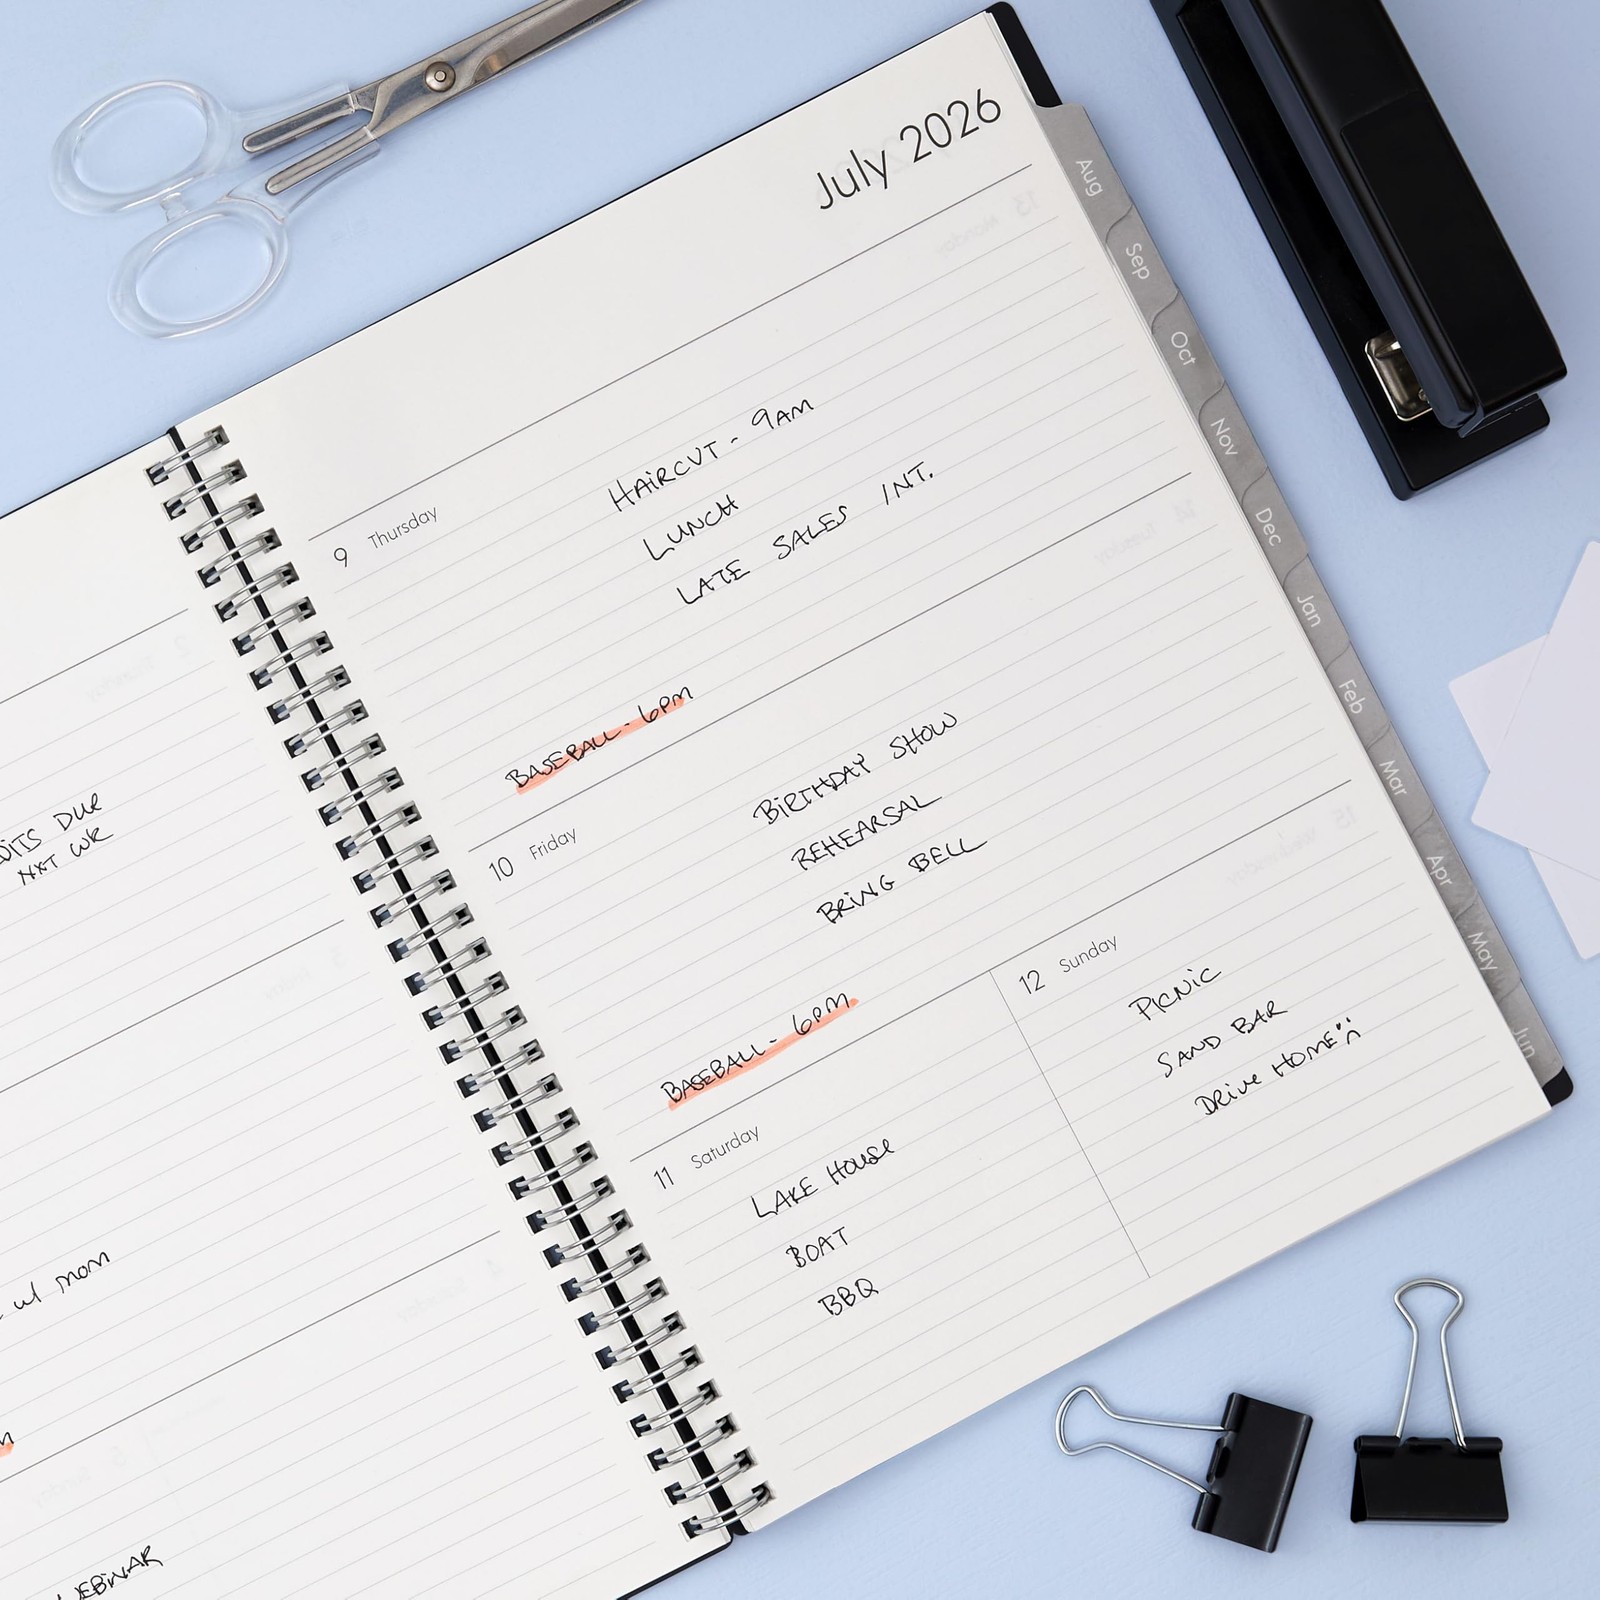 DUE
NXT WK
w/ mom
WEBINAR
July 2026
9 Thursday
HAIRCUT - 9AM
LUNCH
LATE SALES INT.
BASEBALL - 6PM
10 Friday
BIRTHDAY SHOW
REHEARSAL
BRING BELL
BASEBALL - 6PM
11 Saturday
LAKE HOUSE
BOAT
BBQ
12 Sunday
PICNIC
SAND BAR
DRIVE HOME :(
Aug
Sep
Oct
Nov
Dec
Jan
Feb
Mar
Apr
May
Jun